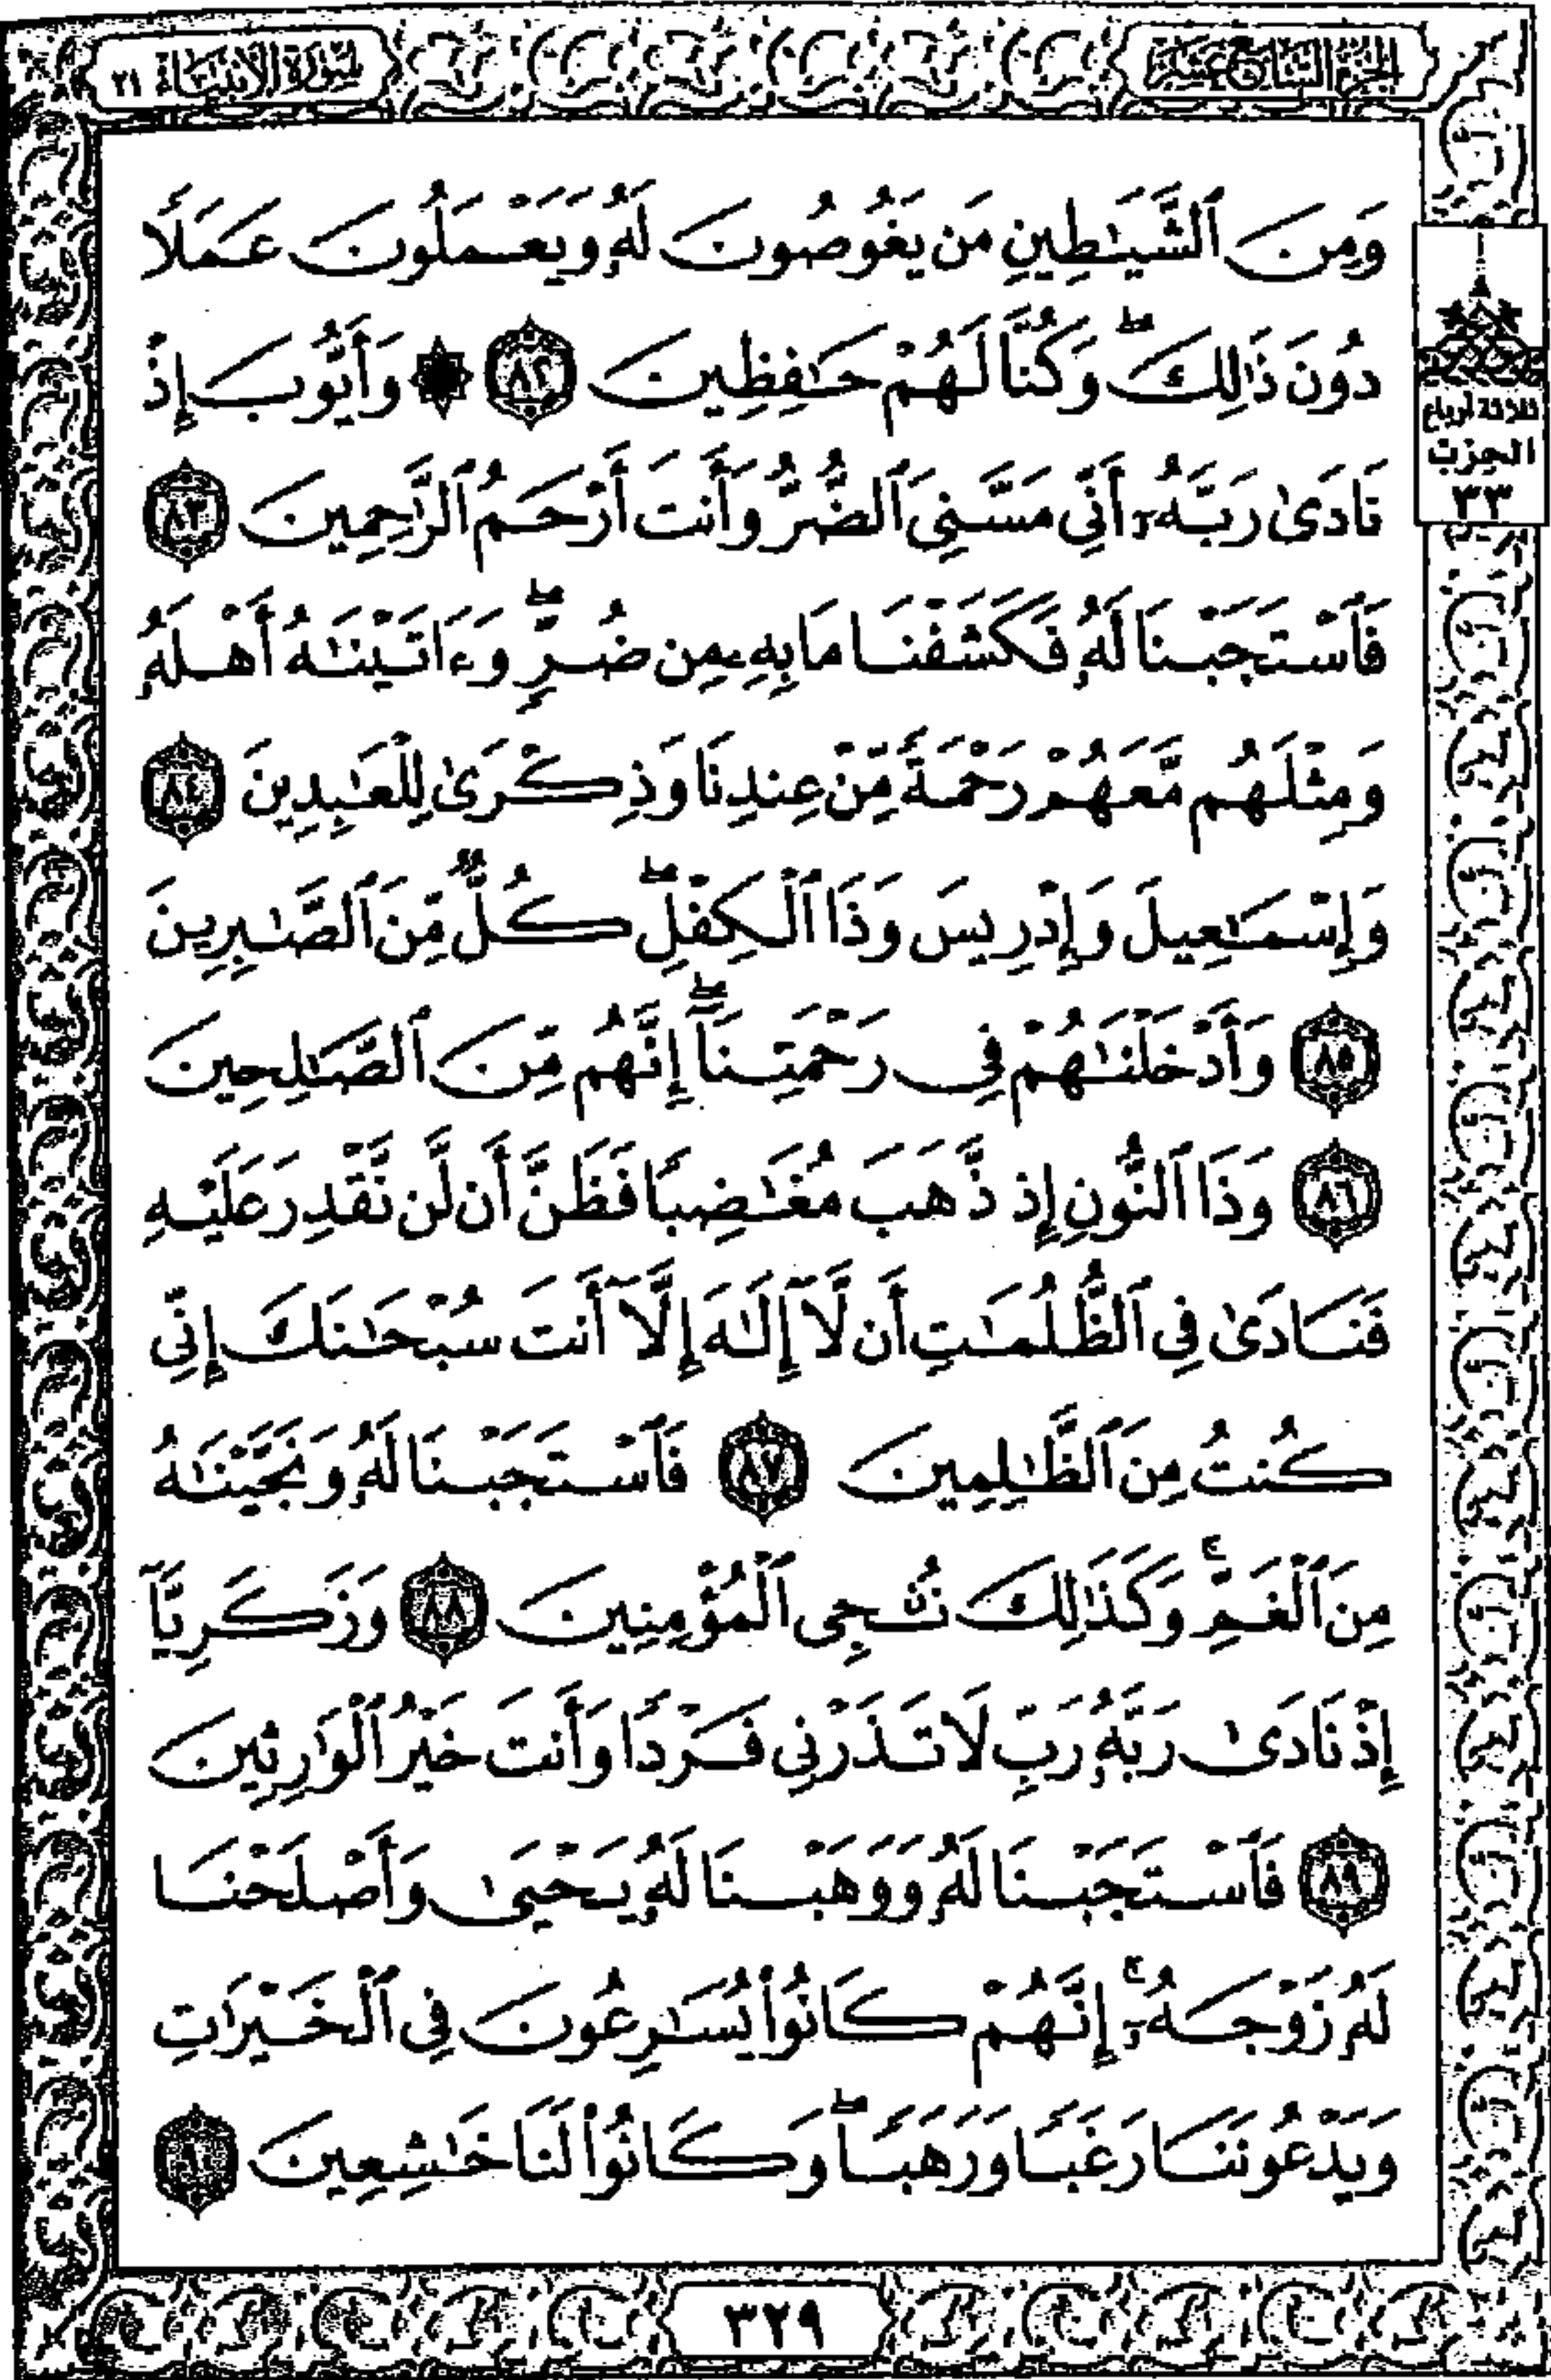 الجزء السابع عشر
سورة الأنبياء ٢١
وَمِنَ ٱلشَّيَٰطِينِ مَن يَغُوصُونَ لَهُۥ وَيَعْمَلُونَ عَمَلًا
دُونَ ذَٰلِكَ ۖ وَكُنَّا لَهُمْ حَٰفِظِينَ ٨٢ ۞ وَأَيُّوبَ إِذْ
نَادَىٰ رَبَّهُۥٓ أَنِّى مَسَّنِىَ ٱلضُّرُّ وَأَنتَ أَرْحَمُ ٱلرَّٰحِمِينَ ٨٣
فَٱسْتَجَبْنَا لَهُۥ فَكَشَفْنَا مَا بِهِۦ مِن ضُرٍّ ۖ وَءَاتَيْنَٰهُ أَهْلَهُۥ
وَمِثْلَهُم مَّعَهُمْ رَحْمَةً مِّنْ عِندِنَا وَذِكْرَىٰ لِلْعَٰبِدِينَ ٨٤
وَإِسْمَٰعِيلَ وَإِدْرِيسَ وَذَا ٱلْكِفْلِ ۖ كُلٌّ مِّنَ ٱلصَّٰبِرِينَ
٨٥ وَأَدْخَلْنَٰهُمْ فِى رَحْمَتِنَآ ۖ إِنَّهُم مِّنَ ٱلصَّٰلِحِينَ
٨٦ وَذَا ٱلنُّونِ إِذ ذَّهَبَ مُغَٰضِبًا فَظَنَّ أَن لَّن نَّقْدِرَ عَلَيْهِ
فَنَادَىٰ فِى ٱلظُّلُمَٰتِ أَن لَّآ إِلَٰهَ إِلَّآ أَنتَ سُبْحَٰنَكَ إِنِّى
كُنتُ مِنَ ٱلظَّٰلِمِينَ ٨٧ فَٱسْتَجَبْنَا لَهُۥ وَنَجَّيْنَٰهُ
مِنَ ٱلْغَمِّ ۚ وَكَذَٰلِكَ نُۨجِى ٱلْمُؤْمِنِينَ ٨٨ وَزَكَرِيَّآ
إِذْ نَادَىٰ رَبَّهُۥ رَبِّ لَا تَذَرْنِى فَرْدًا وَأَنتَ خَيْرُ ٱلْوَٰرِثِينَ
٨٩ فَٱسْتَجَبْنَا لَهُۥ وَوَهَبْنَا لَهُۥ يَحْيَىٰ وَأَصْلَحْنَا
لَهُۥ زَوْجَهُۥٓ ۚ إِنَّهُمْ كَانُوا۟ يُسَٰرِعُونَ فِى ٱلْخَيْرَٰتِ
وَيَدْعُونَنَا رَغَبًا وَرَهَبًا ۖ وَكَانُوا۟ لَنَا خَٰشِعِينَ ٩٠
ثلاثة أرباع
الحزب
٣٣
٣٢٩